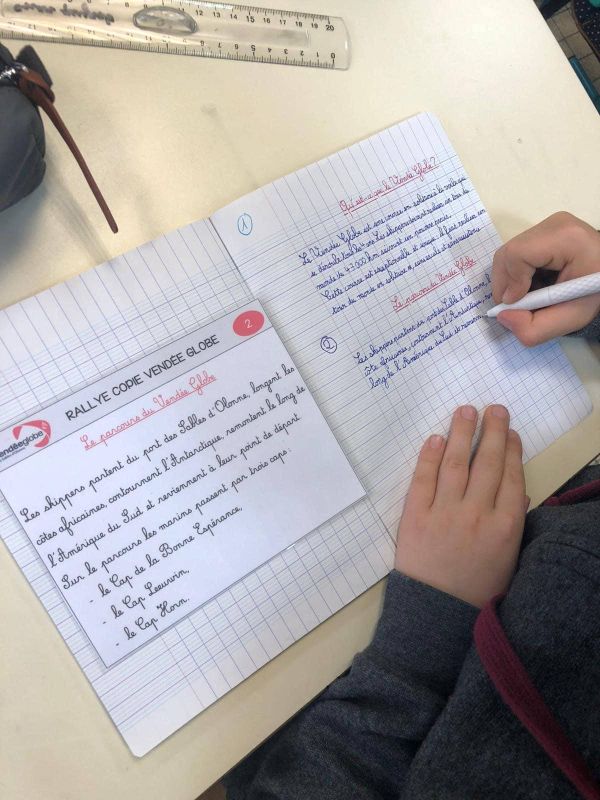 2
vendéeglobe
RALLYE COPIE VENDEE GLOBE
Le parcours du Vendée Globe
Les skippers partent du port des Sables d'Olonne, longent les
côtes africaines, contournent l'Antarctique, remontent le long de
l'Amérique du Sud et reviennent à leur point de départ
Sur le parcours les marins passent par trois caps :
- le Cap de la Bonne Espérance,
- le Cap Leeuwin,
- le Cap Horn.
1
Qu'est-ce que le Vendée Globe ?
Le Vendée Globe est une course en solitaire à la voile qui
se déroule tout les 4 ans. Les skippers doivent réaliser un tour du
monde de 45 000 km suivant un parcours
Cette course est exceptionnelle et il faut réaliser un
tour du monde en solitaire, sans escale et sans assistance
Le parcours du Vendée Globe
2
Les skippers partent du port des Sable d'Olonne,
côte africaines, contournent l'Antarctique,
long de l'Amérique du Sud et